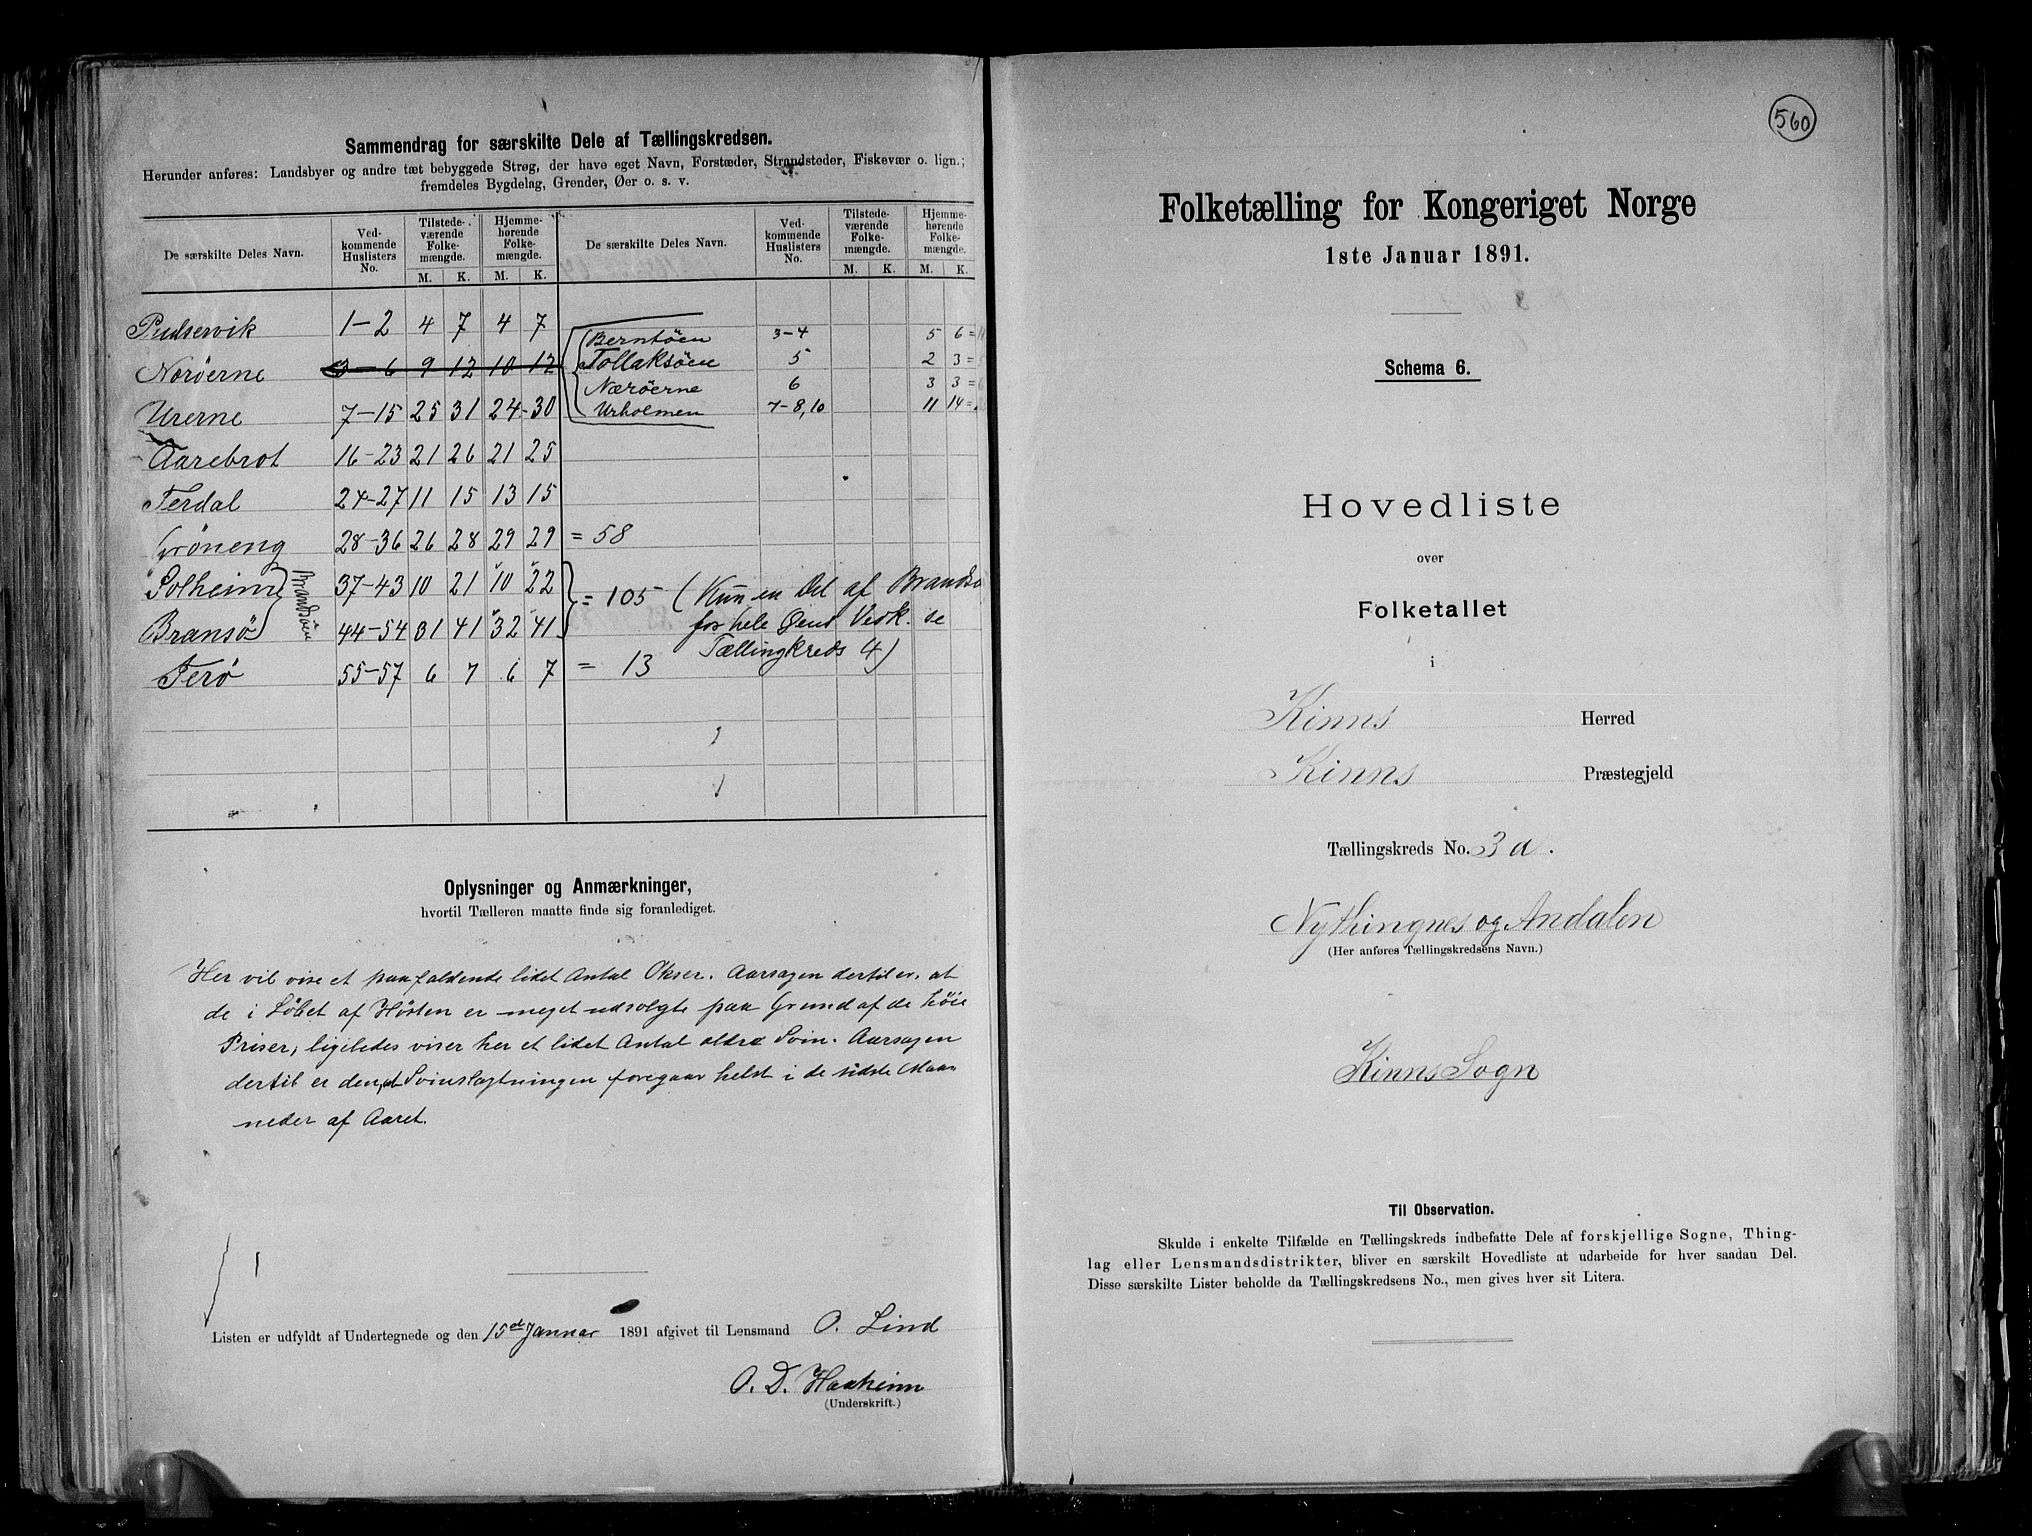 Sammendrag for særskilte Dele af Tællingskredsen.
Herunder anføres: Landsbyer og andre tæt bebyggede Strøg, der have eget Navn, Forstæder, Strandsteder, Fiskevær o. lign.;
fremdeles Bygdelag, Grender, Øer o. s. v.
De særskilte Deles Navn. Vedkommende Huslisters No. Tilstedeværende Folkemængde. M. K. Hjemmehørende Folkemængde. M. K. De særskilte Deles Navn. Vedkommende Huslisters No. Tilstedeværende Folkemængde. M. K. Hjemmehørende Folkemængde. M. K.
1-2 4 7 4 7
Berntöen 3-4 5 6 =
Noröerne 3-6 9 12 10 12 Tollaksöen 5 2 3 =
Næröerne 6 3 3 =
Urerne 7-15 25 31 24 30 Urholmen 7-8, 10 11 14 =
Aarebrot 16-23 21 26 21 25
Terdal 24-27 11 15 13 15
Gröneng 28-36 26 28 29 29 = 58
Solheim 37-43 10 21 10 22
Brandsöen
= 105 (Kun en Del af Brandsö
Bransö 44-54 31 41 32 41 for hele Öens Vedk. se
Tællingkreds 4)
Terö 55-57 6 7 6 7 = 13
Oplysninger og Anmærkninger,
hvortil Tælleren maatte finde sig foranlediget.
Her vil vise et paafaldende lidet Antal Okser. Aarsagen dertil er, at
de i Löbet af Hösten er meget udsolgte paa Grund af de höie
Priser, ligeledes viser her et lidet Antal ældre Svin. Aarsagen
dertil er den, at Svinslagtningen foregaar helst i de sidste Maa-
neder af Aaret.
Listen er udfyldt af Undertegnede og den 15de Januar 1891 afgivet til Lensmand O. Lind
O. D. Haaheim
(Underskrift.)
560
Folketælling for Kongeriget Norge
1ste Januar 1891.
Schema 6.
Hovedliste
over
Folketallet
i
Kinns Herred
Kinns Præstegjeld
Tællingskreds No. 3 a.
Nythingnes og Andalen
(Her anføres Tællingskredsens Navn.)
Kinns Sogn
Til Observation.
Skulde i enkelte Tilfælde en Tællingskreds indbefatte Dele af forskjellige Sogne, Thing-
lag eller Lensmandsdistrikter, bliver en særskilt Hovedliste at udarbeide for hver saadan Del.
Disse særskilte Lister beholde da Tællingskredsens No., men gives hver sit Litera.